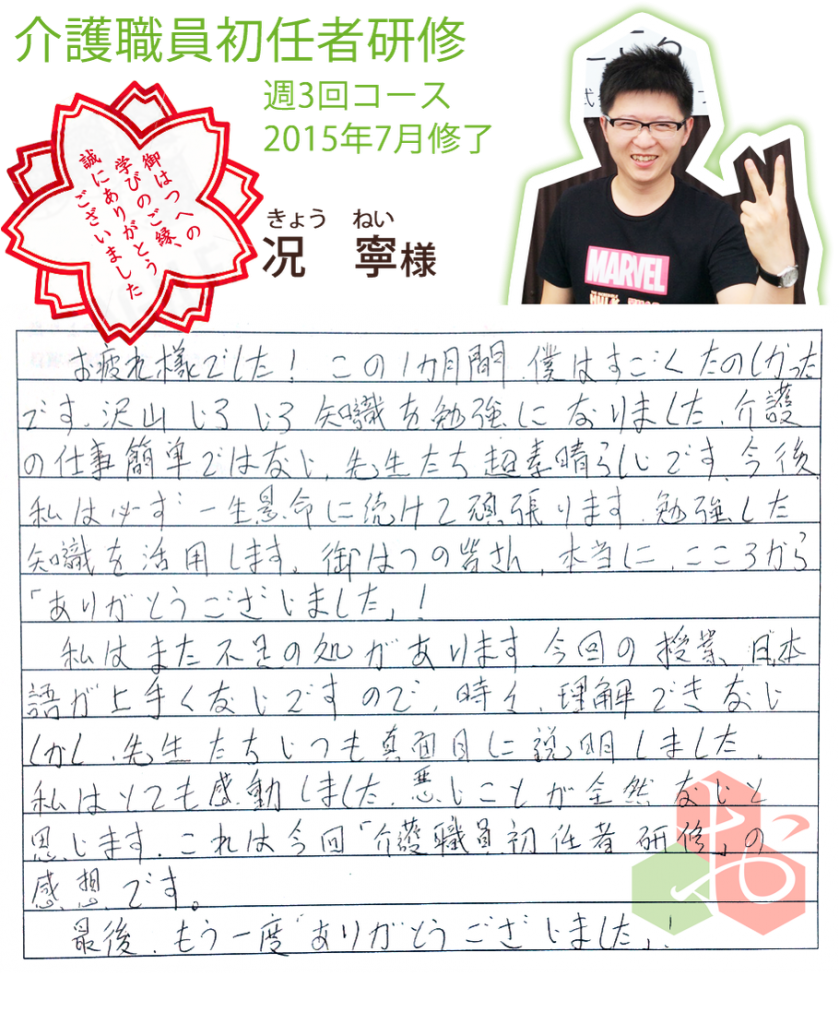 介護職員初任者研修
週3回コース
2015年7月修了
御はつへの
学びのご縁、
誠にありがとう
ございました
きょう ねい
況 寧様
MARVEL
お疲れ様でした! この1カ月間、僕はすごくたのしかった
です、沢山いろいろ知識を勉強になりました、介護
の仕事簡単ではない、先生たち超素晴らしいです、今後
私は必ず一生懸命に続けて頑張ります、勉強した
知識を活用します。御はつの皆さん、本当に、こころから
「ありがとうございました」!
私はまた不足の処があります、今回の授業、日本
語が上手くないですので、時々、理解できない
しかし、先生たちいつも真面目に説明しました、
私はとても感動しました、悪いことが全然ないと
思います、これは今回「介護職員初任者研修」の
感想です。
最後、もう一度「ありがとうございました」!